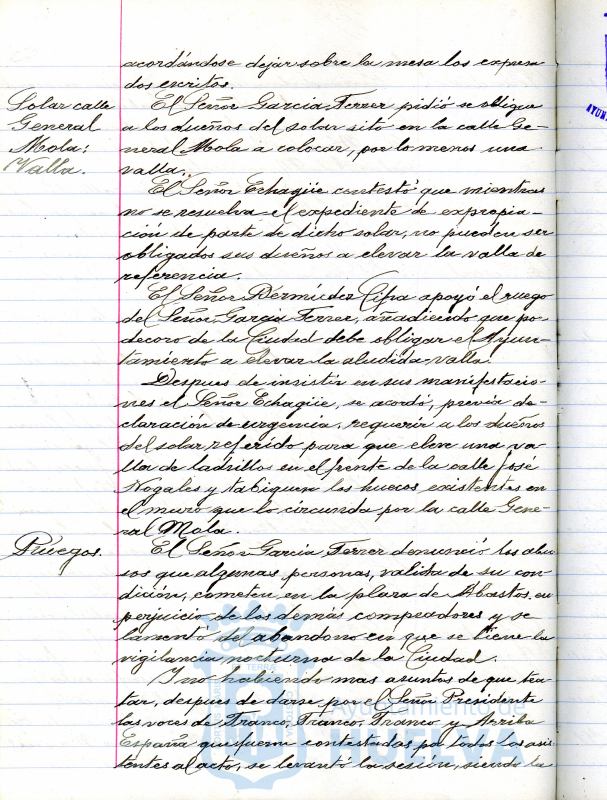 acordándose dejar sobre la mesa los expresa
dos escritos.
Solar calle
General
Mola:
Valla.
El Señor García Ferrer pidió se obligue
a los dueños del solar sito en la calle Ge-
neral Mola a colocar, por lo menos una
valla.
El Señor Echagüe contestó que mientras
no se resuelva el expediente de expropia-
ción de parte de dicho solar, no pueden ser
obligados sus dueños a elevar la valla de
referencia.
El Señor Bermúdez Cifra apoyó el ruego
del Señor García Ferrer, añadiendo que por
decoro de la Ciudad debe obligar el Ayun-
tamiento a elevar la aludida valla.
Despues de insistir en sus manifestacio-
nes el Señor Echagüe, se acordó, previa de-
claración de urgencia, requerir a los dueños
del solar referido para que eleven una va-
lla de ladrillos en el frente de la calle José
Nogales y tabiquen los huecos existentes en
el muro que lo circunda por la calle Gene-
ral Mola.
Ruegos.
El Señor García Ferrer denunció los abu-
sos que algunas personas, valida de su con-
dición, cometen en la plaza de Abastos, en
perjuicio de los demás compradores y se
lamentó del abandono en que se tiene la
vigilancia nocturna de la Ciudad.
Y no habiendo mas asuntos de que tra-
tar, despues de darse por el Señor Presidente
las voces de Franco, Franco, Franco y Arriba
España que fueron contestadas por todos los asis-
tentes al acto, se levantó la sesión, siendo la
Ayuntamiento de
HUELVA